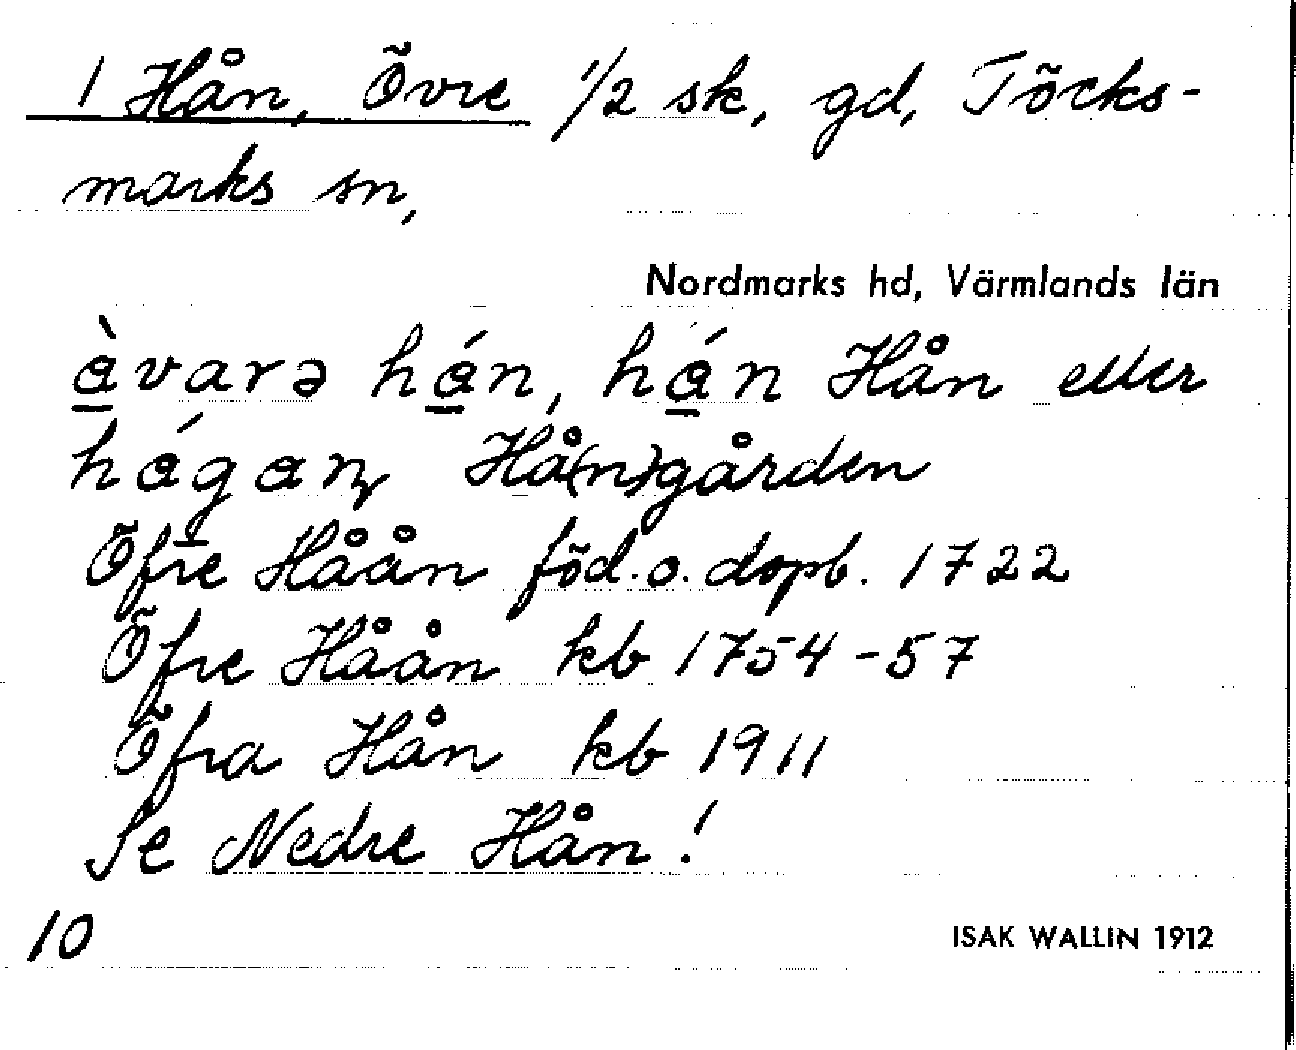 1 Hån, Övre 1/2 sk, gd, Töcks-
marks sn,
Nordmarks hd, Värmlands län
à̱varə há̱n, há̱n Hån eller
hágaɳ Hå(n)gården
Öfre Håån föd.o.dopb. 1722
Öfre Håån kb 1754-57
Öfra Hån kb 1911
Se Nedre Hån!
10
ISAK WALLIN 1912